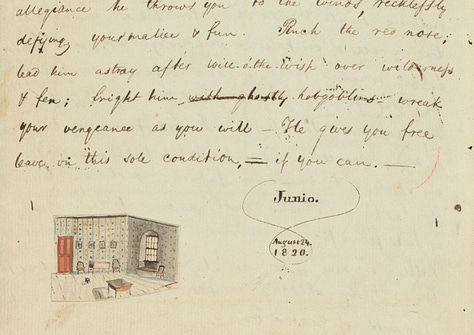 allegiance he throws you to the winds, recklessly
defying your malice & fun. Pinch the red nose;
lead him astray after will-o'the-wisp over wilderness
& fen; fright him with ghostly hobgoblins - wreak
your vengeance as you will - He gives you free
leave on this sole condition, = if you can. -
Junio.
August 24.
1820.